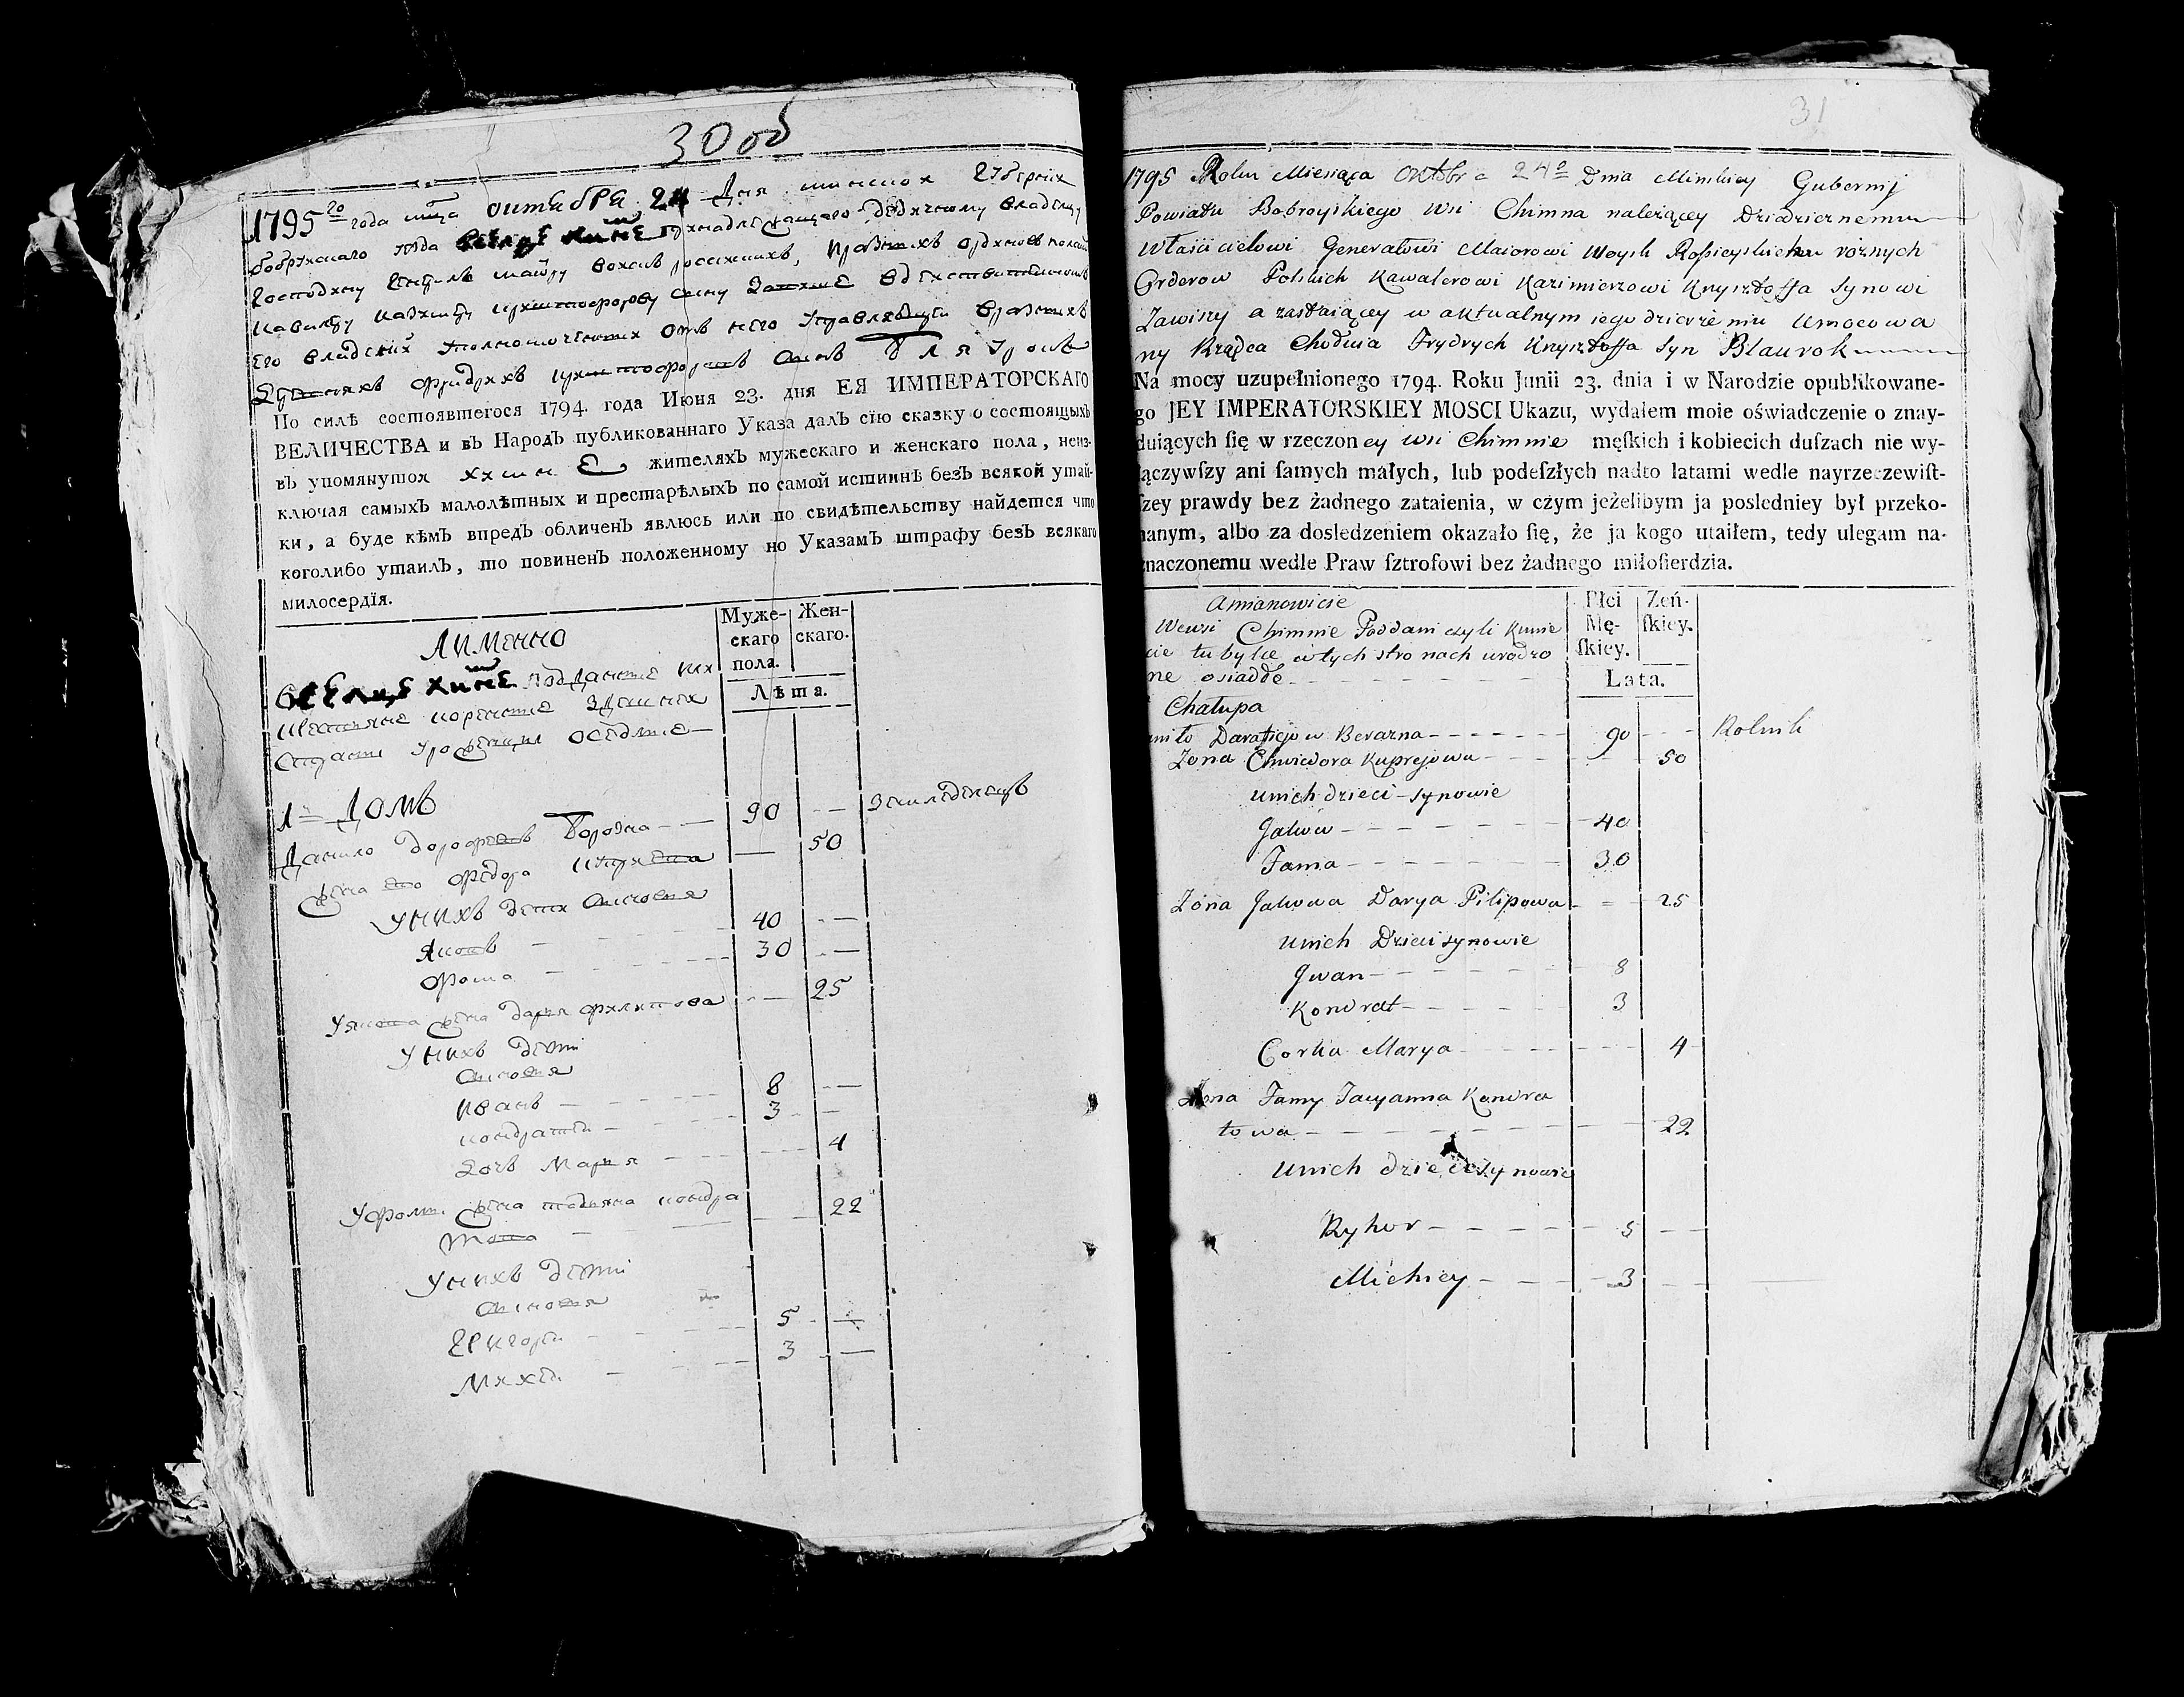 30 об
1795го года мца октабра 24 Дня минской Губернии
бобруйскаго пвда селце Химне принадлежащаго дедичному владелцу
Господину Генералъ маіору войскъ россискихъ, разныхъ ординовъ полских
кавалеру казимеру криштофорову сыну Завише вдействителномъ
его владении уполномоченных отъ него управляющей
фридрихъ криштофоровъ сынъ Бляурокъ
По силѣ состоявшегося 1794. года Июня 23. дня ЕЯ ИМПЕРАТОРСКАГО
ВЕЛИЧЕСТВА и въ Народъ публикованнаго Указа далъ сію сказку о состоящыхъ
въ упомянутой химне жителяхъ мужескаго и женскаго пола, неиз-
ключая самыхъ малолѣтныхъ и престарѣлыхъ по самой истиннѣ безъ всякой утай-
ки, а буде кѣмъ впредь обличенъ явлюсь или по свидѣтельству найдется что
коголибо утаилъ, то повиненъ положенному по Указамъ штрафу безъ всякаго
милосердїя.
Муже-
скаго
пола.
Жен-
скаго.
Лѣта.
А имено
Вселце химне подданные кре
стьяне корение здешних
Старане урожение оседлие
1 Домъ
Данило дорофеевъ Борозна 90 Земледелецъ
жена его Федора купреева 50
У нихъ дети Сыновя
Яковъ 40
Фома 30
У якова жена дарья филипова 25
У нихъ дети
Сыновя
иванъ 8
кондратей 3
Дочь Марья 4
У фоми жена татьяна кондра
това 22
У нихъ дети
Сыновя
Григорей 5
Михей 3
31
1795 Roku Miesiąca Oktobra 24o Dnia Minskiey Gubernij
Powiatu Bobroyskiego Wsi Chimna należącey Dziedzicznemu
Właścicielowi Generałowi Maiorowi Woysk Rossieyskich roznych
Orderow Polskich Kawalerowi Kazimierzowi Krysztoffa Synowi
Zawiszy a zostaiącey w aktualnym iego dzierżeniu Umocowa
ny Rządca Chodnia Frydrych Krysztoffa Syn Blaurok
Na mocy uzupełnionego 1794. Roku Junii 23. dnia i w Narodzie opublikowane-
go JEY IMPERATORSKIEY MOSCI Ukazu, wydałem moie oświadczenie o znay-
duiących ſię w rzeczoney wsi Chimnie męſkich i kobiecich duſzach nie wy-
łączywſzy ani ſamych małych, lub podeſzłych nadto latami wedle nayrzeczewiſt-
ſzey prawdy bez żadnego zataienia, w czym jeżelibym ja posledniey był przeko-
nanym, albo za dosledzeniem okazało ſię, że ja kogo utaiłem, tedy ulegam na-
znaczonemu wedle Praw ſztrofowi bez żadnego miłoſierdzia.
Płci
Mę-
ſkiey.
Żeń-
ſkiey.
Lata.
Amianowicie
Wewsi Chimnie Poddani czyli Kmie
cie tubylce w tych stronach urodzo
ne osiadłe
Chałupa
niło Darafiejow Berazna 90 Rolnik
Zona Chwiedora Kuprejowa 50
unich dzieci synowie
Jakow 40
Fama 30
Zona Jakowa Darya Pilipowa 25
unich Dzieci synowie
Jwan 8
Kondrat 3
Corka Marya 4
Zona Famy Tacyanna Kandra
towa 22
unich dzieci synowie
Ryhor 5
Michiey 3